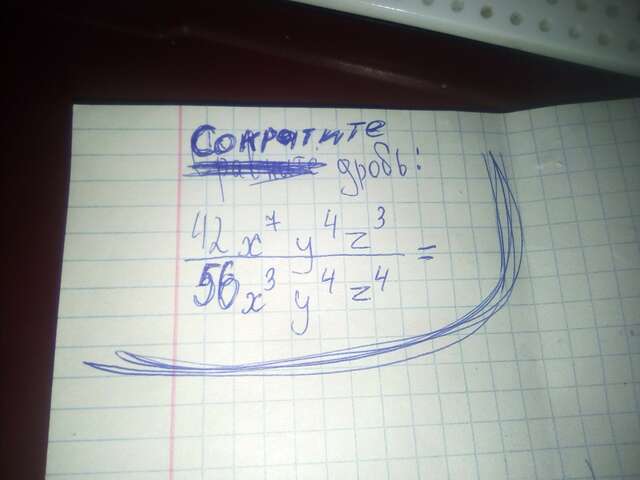 Сократите
дробь:
42x⁷y⁴z³
56x³y⁴z⁴ =